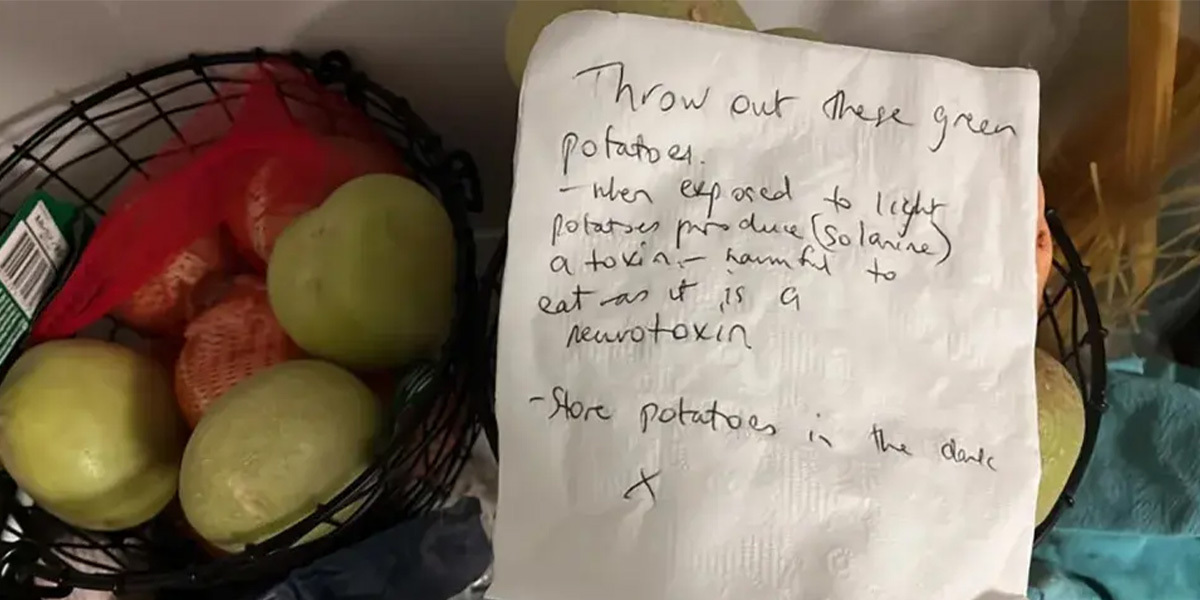 Throw out these green
potatoes.
- when exposed to light
potatoes produce (solanine)
a toxin - harmful to
eat as it is a
neurotoxin
- Store potatoes in the dark
X